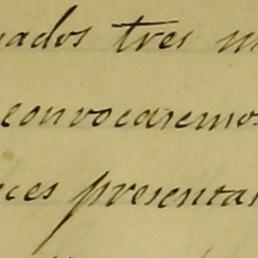 nados tres m
convocaremos
nces presentar